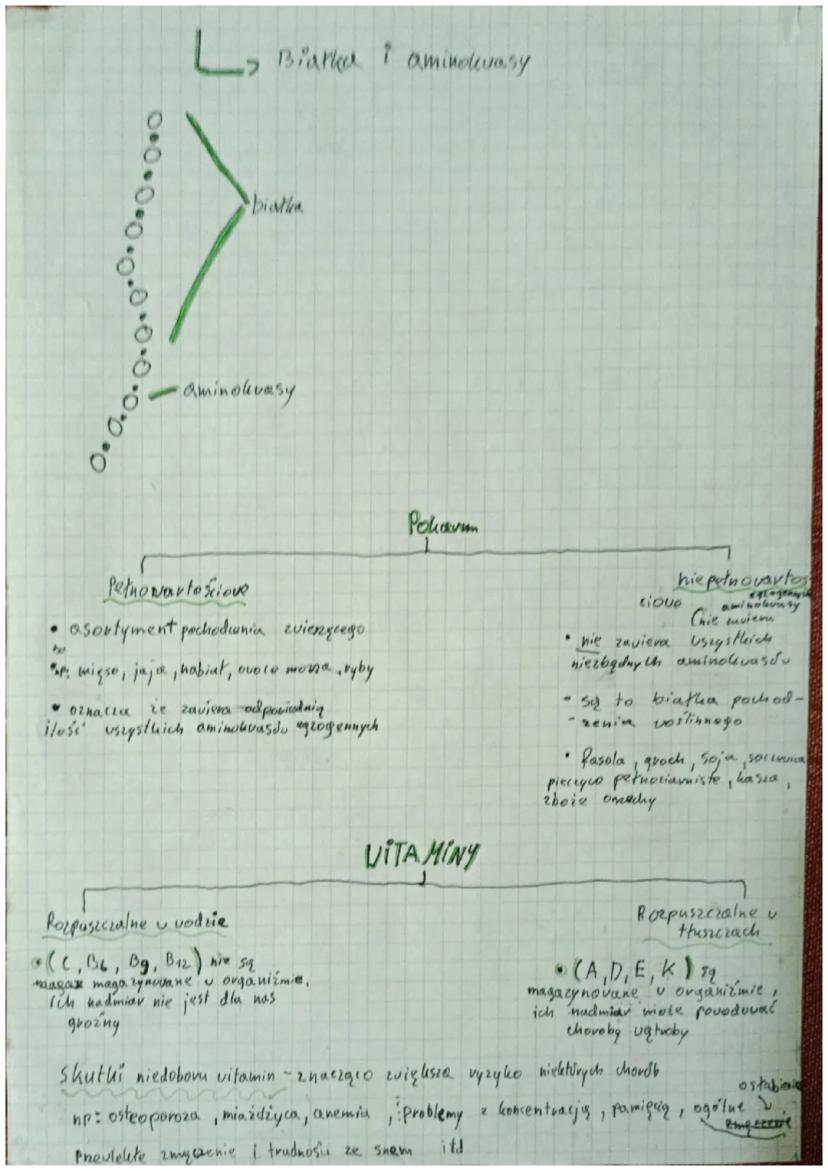 Białka i aminokwasy
białka
aminokwasy
Pokarm
Pełnowartościowe
• asortyment pochodzenia zwierzęcego
np: mięso, jaja, nabiał, owoce morza, ryby
• oznacza że zawiera odpowiednią
ilość wszystkich aminokwasów egzogennych
niepełnowartoś-
ciowe
(nie zawiera
aminokwasy
• nie zawiera wszystkich
niezbędnych aminokwasów
- są to białka pochod-
-zenia roślinnego
• fasola, groch, soja, soczewica
pieczywo pełnoziarniste, kasza,
zboże orzechy
WITAMINY
Rozpuszczalne w wodzie
• (C, B6, B9, B12) nie są
magazynowane w organizmie,
ich nadmiar nie jest dla nas
groźny
Rozpuszczalne w
tłuszczach
• (A, D, E, K) są
magazynowane w organizmie,
ich nadmiar może powodować
choroby wątroby
Skutki niedoboru witamin - znacząco zwiększa ryzyko niektórych chorób
np: osteoporoza, miażdżyca, anemia, problemy z koncentracją, pamięcią, ogólne osłabienie
przewlekłe zmęczenie i trudności ze snem itd